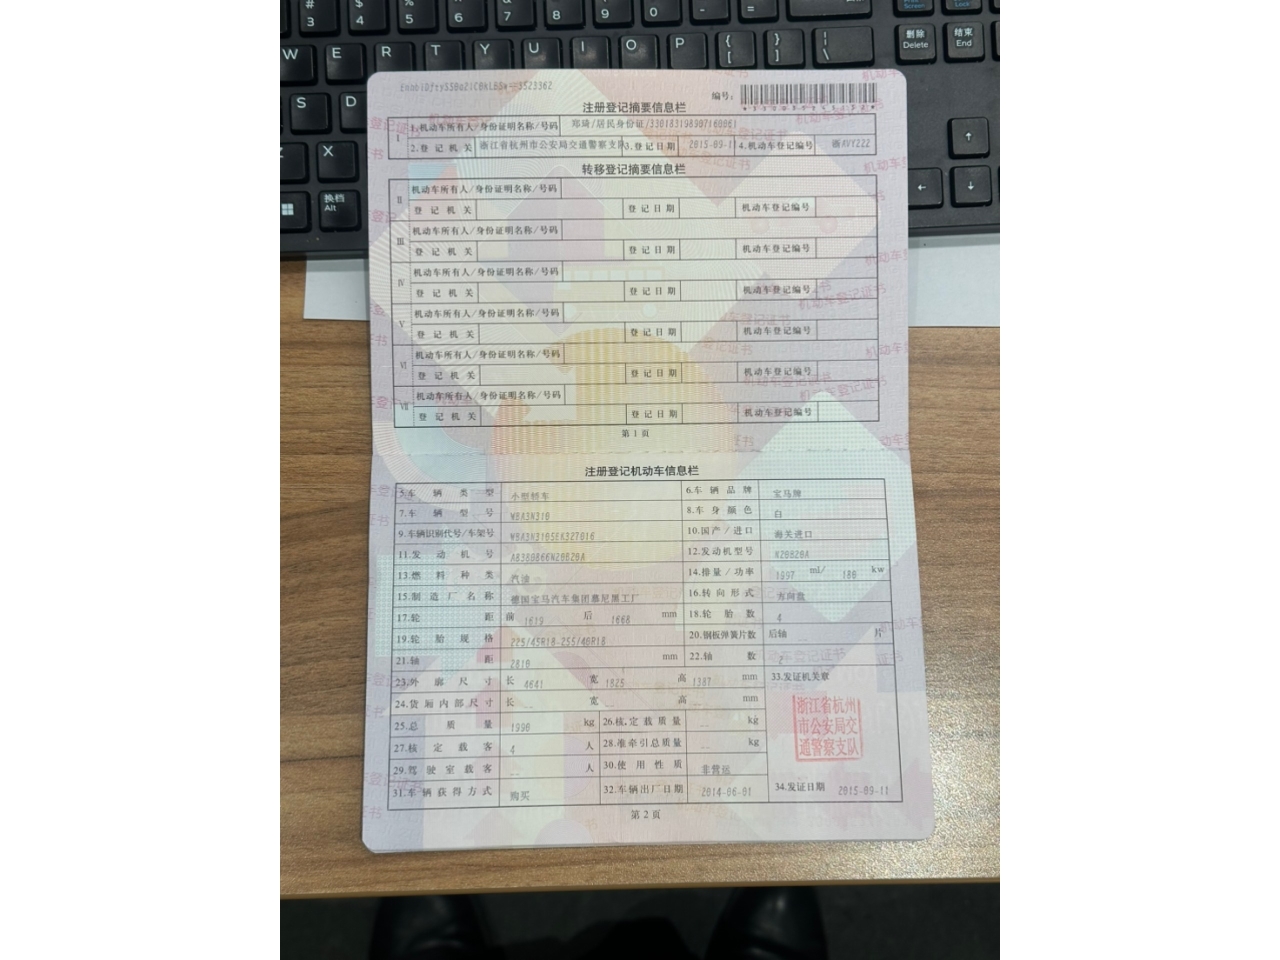 # 3
$ 4
% 5
^ 6
& 7
* 8
( 9
) 0
_ -
+ =
W E R T Y U I O P { [ } ] | \
删除 Delete
结束 End
S D
X
换档 Alt
↑
← ↓
编号:
注册登记摘要信息栏
I 1.机动车所有人/身份证明名称/号码 /居民身份证/
2.登记机关 浙江省杭州市公安局交通警察支队 3.登记日期 2015-09-11 4.机动车登记编号
转移登记摘要信息栏
II 机动车所有人/身份证明名称/号码
登记机关 登记日期 机动车登记编号
III 机动车所有人/身份证明名称/号码
登记机关 登记日期 机动车登记编号
IV 机动车所有人/身份证明名称/号码
登记机关 登记日期 机动车登记编号
V 机动车所有人/身份证明名称/号码
登记机关 登记日期 机动车登记编号
VI 机动车所有人/身份证明名称/号码
登记机关 登记日期 机动车登记编号
VII 机动车所有人/身份证明名称/号码
登记机关 登记日期 机动车登记编号
第 1 页
注册登记机动车信息栏
5.车辆类型 小型轿车 6.车辆品牌 宝马牌
7.车辆型号 WBA3N310 8.车身颜色 白
9.车辆识别代号/车架号 10.国产/进口 海关进口
11.发动机号 12.发动机型号 N20B20A
13.燃料种类 汽油 14.排量/功率 1997 ml/ 180 kw
15.制造厂名称 德国宝马汽车集团慕尼黑工厂 16.转向形式 方向盘
17.轮距 前 1619 后 1668 mm 18.轮胎数 4
19.轮胎规格 225/45R18-255/40R18 20.钢板弹簧片数 后轴 -- 片
21.轴距 2810 mm 22.轴数 2
23.外廓尺寸 长 4641 宽 1825 高 1387 mm 33.发证机关章
24.货厢内部尺寸 长 -- 宽 -- 高 -- mm
浙江省杭州
市公安局交
通警察支队
25.总质量 1990 kg 26.核定载质量 -- kg
27.核定载客 4 人 28.准牵引总质量 -- kg
29.驾驶室载客 -- 人 30.使用性质 非营运
31.车辆获得方式 购买 32.车辆出厂日期 2014-06-01 34.发证日期 2015-09-11
第 2 页